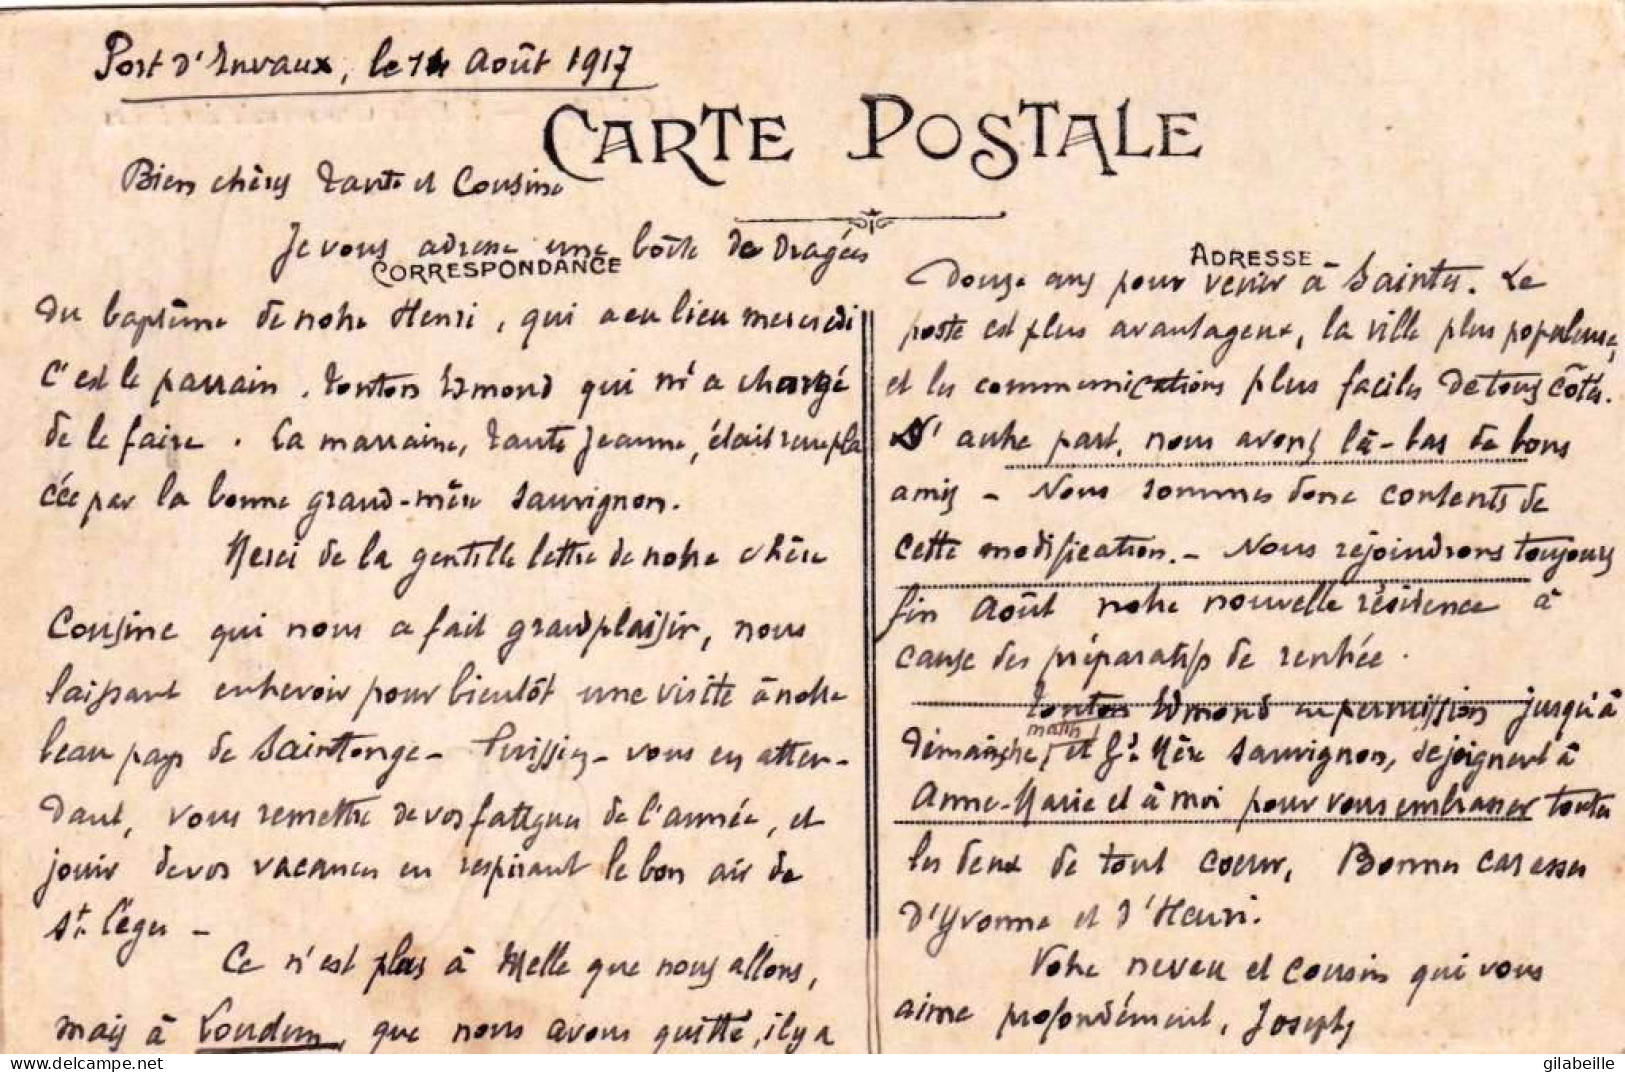 Port d'Envaux, le 14 Août 1917
CARTE POSTALE
Bien chères Tante et Cousine
Je vous adresse une boîte de Dragées
CORRESPONDANCE
du baptême de notre Henri, qui a eu lieu mercredi
C'est le parrain, Tonton Edmond qui m'a chargé
de le faire. La marraine, Tante Jeanne, était rempla
cée par la bonne grand-mère Sauvignon.
Merci de la gentille lettre de notre chère
Cousine qui nous a fait grand plaisir, nous
laissant entrevoir pour bientôt une visite à notre
beau pays de Saintonge - Puissiez-vous en atten-
dant, vous remettre de vos fatigues de l'année, et
jouir de vos vacances en respirant le bon air de
St Léger -
Ce n'est plus à Melle que nous allons,
mais à Loudun, que nous avons quitté, il y a
ADRESSE
Douze ans pour venir à Saintes. Le
poste est plus avantageux, la ville plus populeuse,
et les communications plus faciles de tous côtés.
D'autre part, nous avons là-bas de bons
amis - Nous sommes donc contents de
cette modification. - Nous rejoindrons toujours
fin Août notre nouvelle résidence à
cause des préparatifs de rentrée.
Tonton Edmond en permission jusqu'à
dimanche matin, et Gd Mère Sauvignon, se joignent à
Anne-Marie et à moi pour vous embrasser toutes
les deux de tout coeur, Bonnes caresses
d'Yvonne et d'Henri.
Votre neveu et cousin qui vous
aime profondément, Joseph
gilabeille